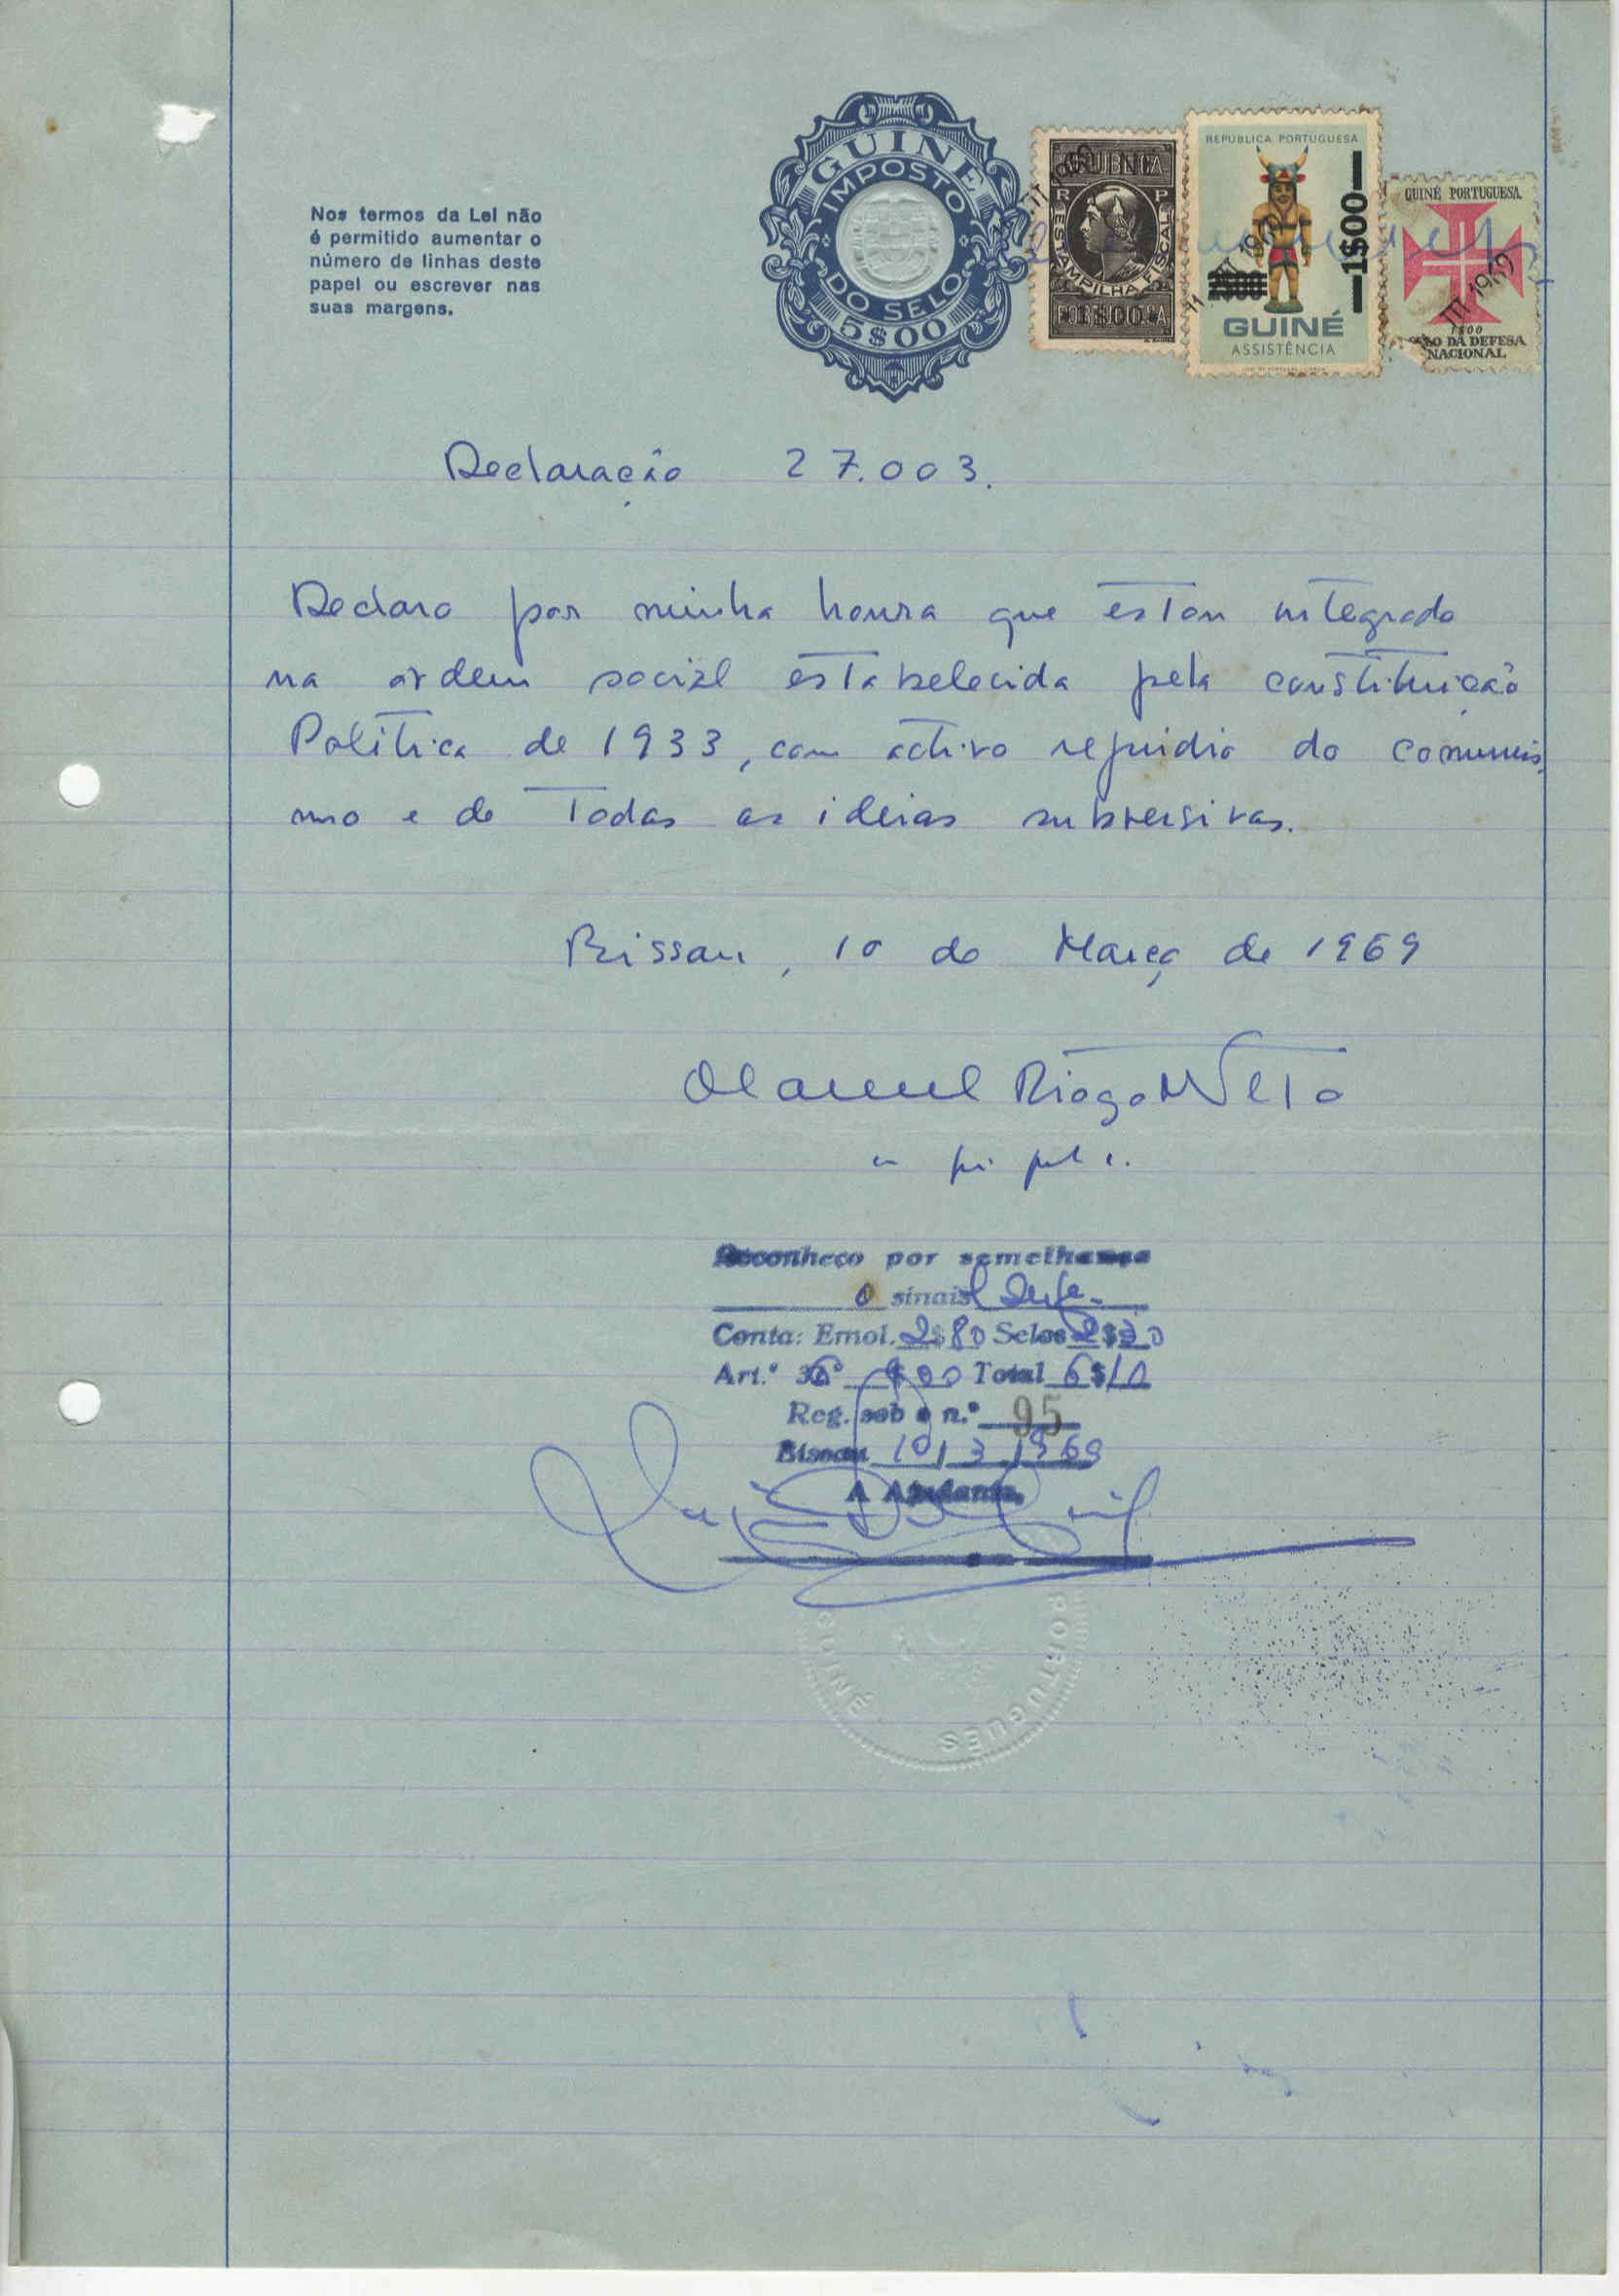 GUINÉ
IMPOSTO
DO SELO
5$00
REPÚBLICA
R P
ESTAMPILHA FISCAL
1$00
PORTUGUESA
REPÚBLICA PORTUGUESA
1$00
GUINÉ
ASSISTÊNCIA
11 III 1969
GUINÉ PORTUGUESA
1$00
DA DEFESA
NACIONAL
III 1969
Nos termos da Lei não
é permitido aumentar o
número de linhas deste
papel ou escrever nas
suas margens.
Declaração 27.003.
Declaro por minha honra que estou integrado
na ordem social estabelecida pela constituição
Política de 1933, com activo repúdio do comunis-
mo e de todas as ideias subversivas.
Bissau, 10 de Março de 1969
Manuel Diogo Neto
Reconheço por semelhança
o sinal
Conta: Emol. 2$80 Selos
Art.º Total 6$10
Reg. sob o n.º 95
Bissau 10/3/1969
A Ajudante,
GUINÉ
PORTUGUESA